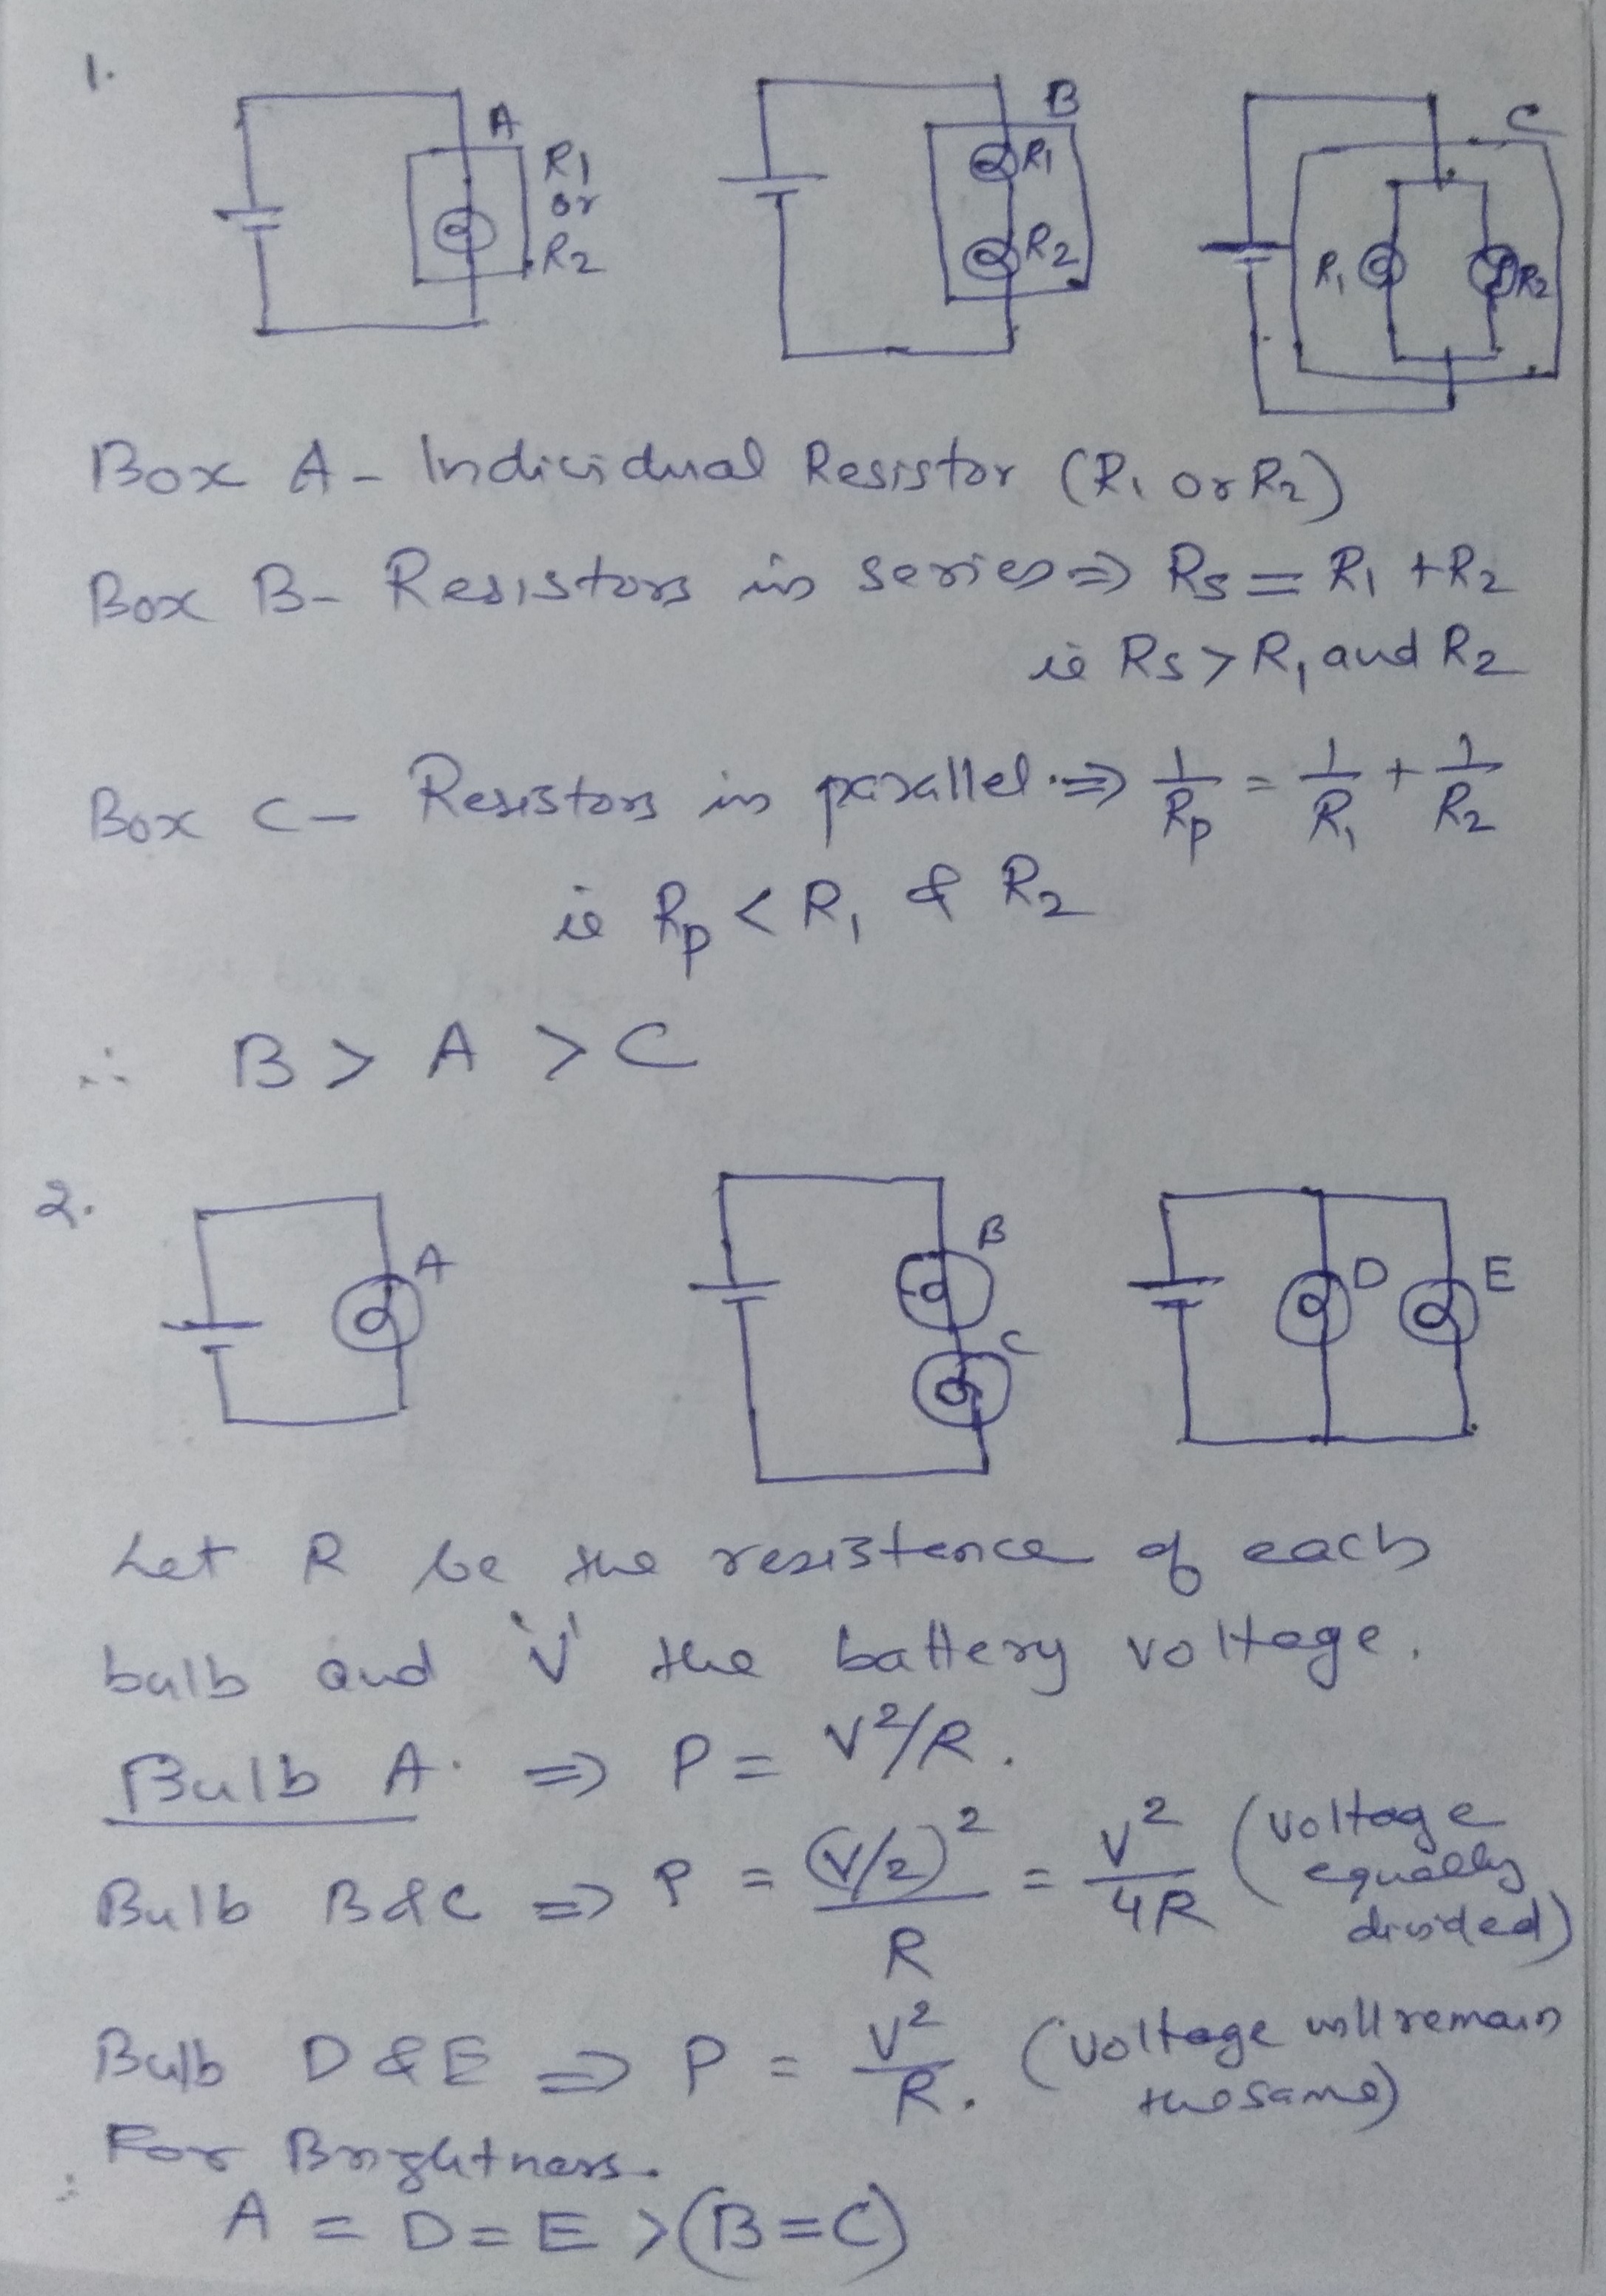 1.
A
R1
or
R2
B
R1
R2
C
R1
R2
Box A - Individual Resistor (R1 or R2)
Box B - Resistors in series ⇒ Rs = R1 + R2
ie Rs > R1 and R2
Box C - Resistors in parallel ⇒ 1/Rp = 1/R1 + 1/R2
ie Rp < R1 & R2
∴ B > A > C
2.
A
B
C
D
E
Let R be the resistence of each
bulb and 'V' the battery voltage.
Bulb A. ⇒ P = V²/R.
Bulb B & C ⇒ P = (V/2)²/R = V²/4R (voltage equally divided)
Bulb D & E ⇒ P = V²/R. (voltage will remain the same)
∴ For Brightness.
A = D = E > (B = C)